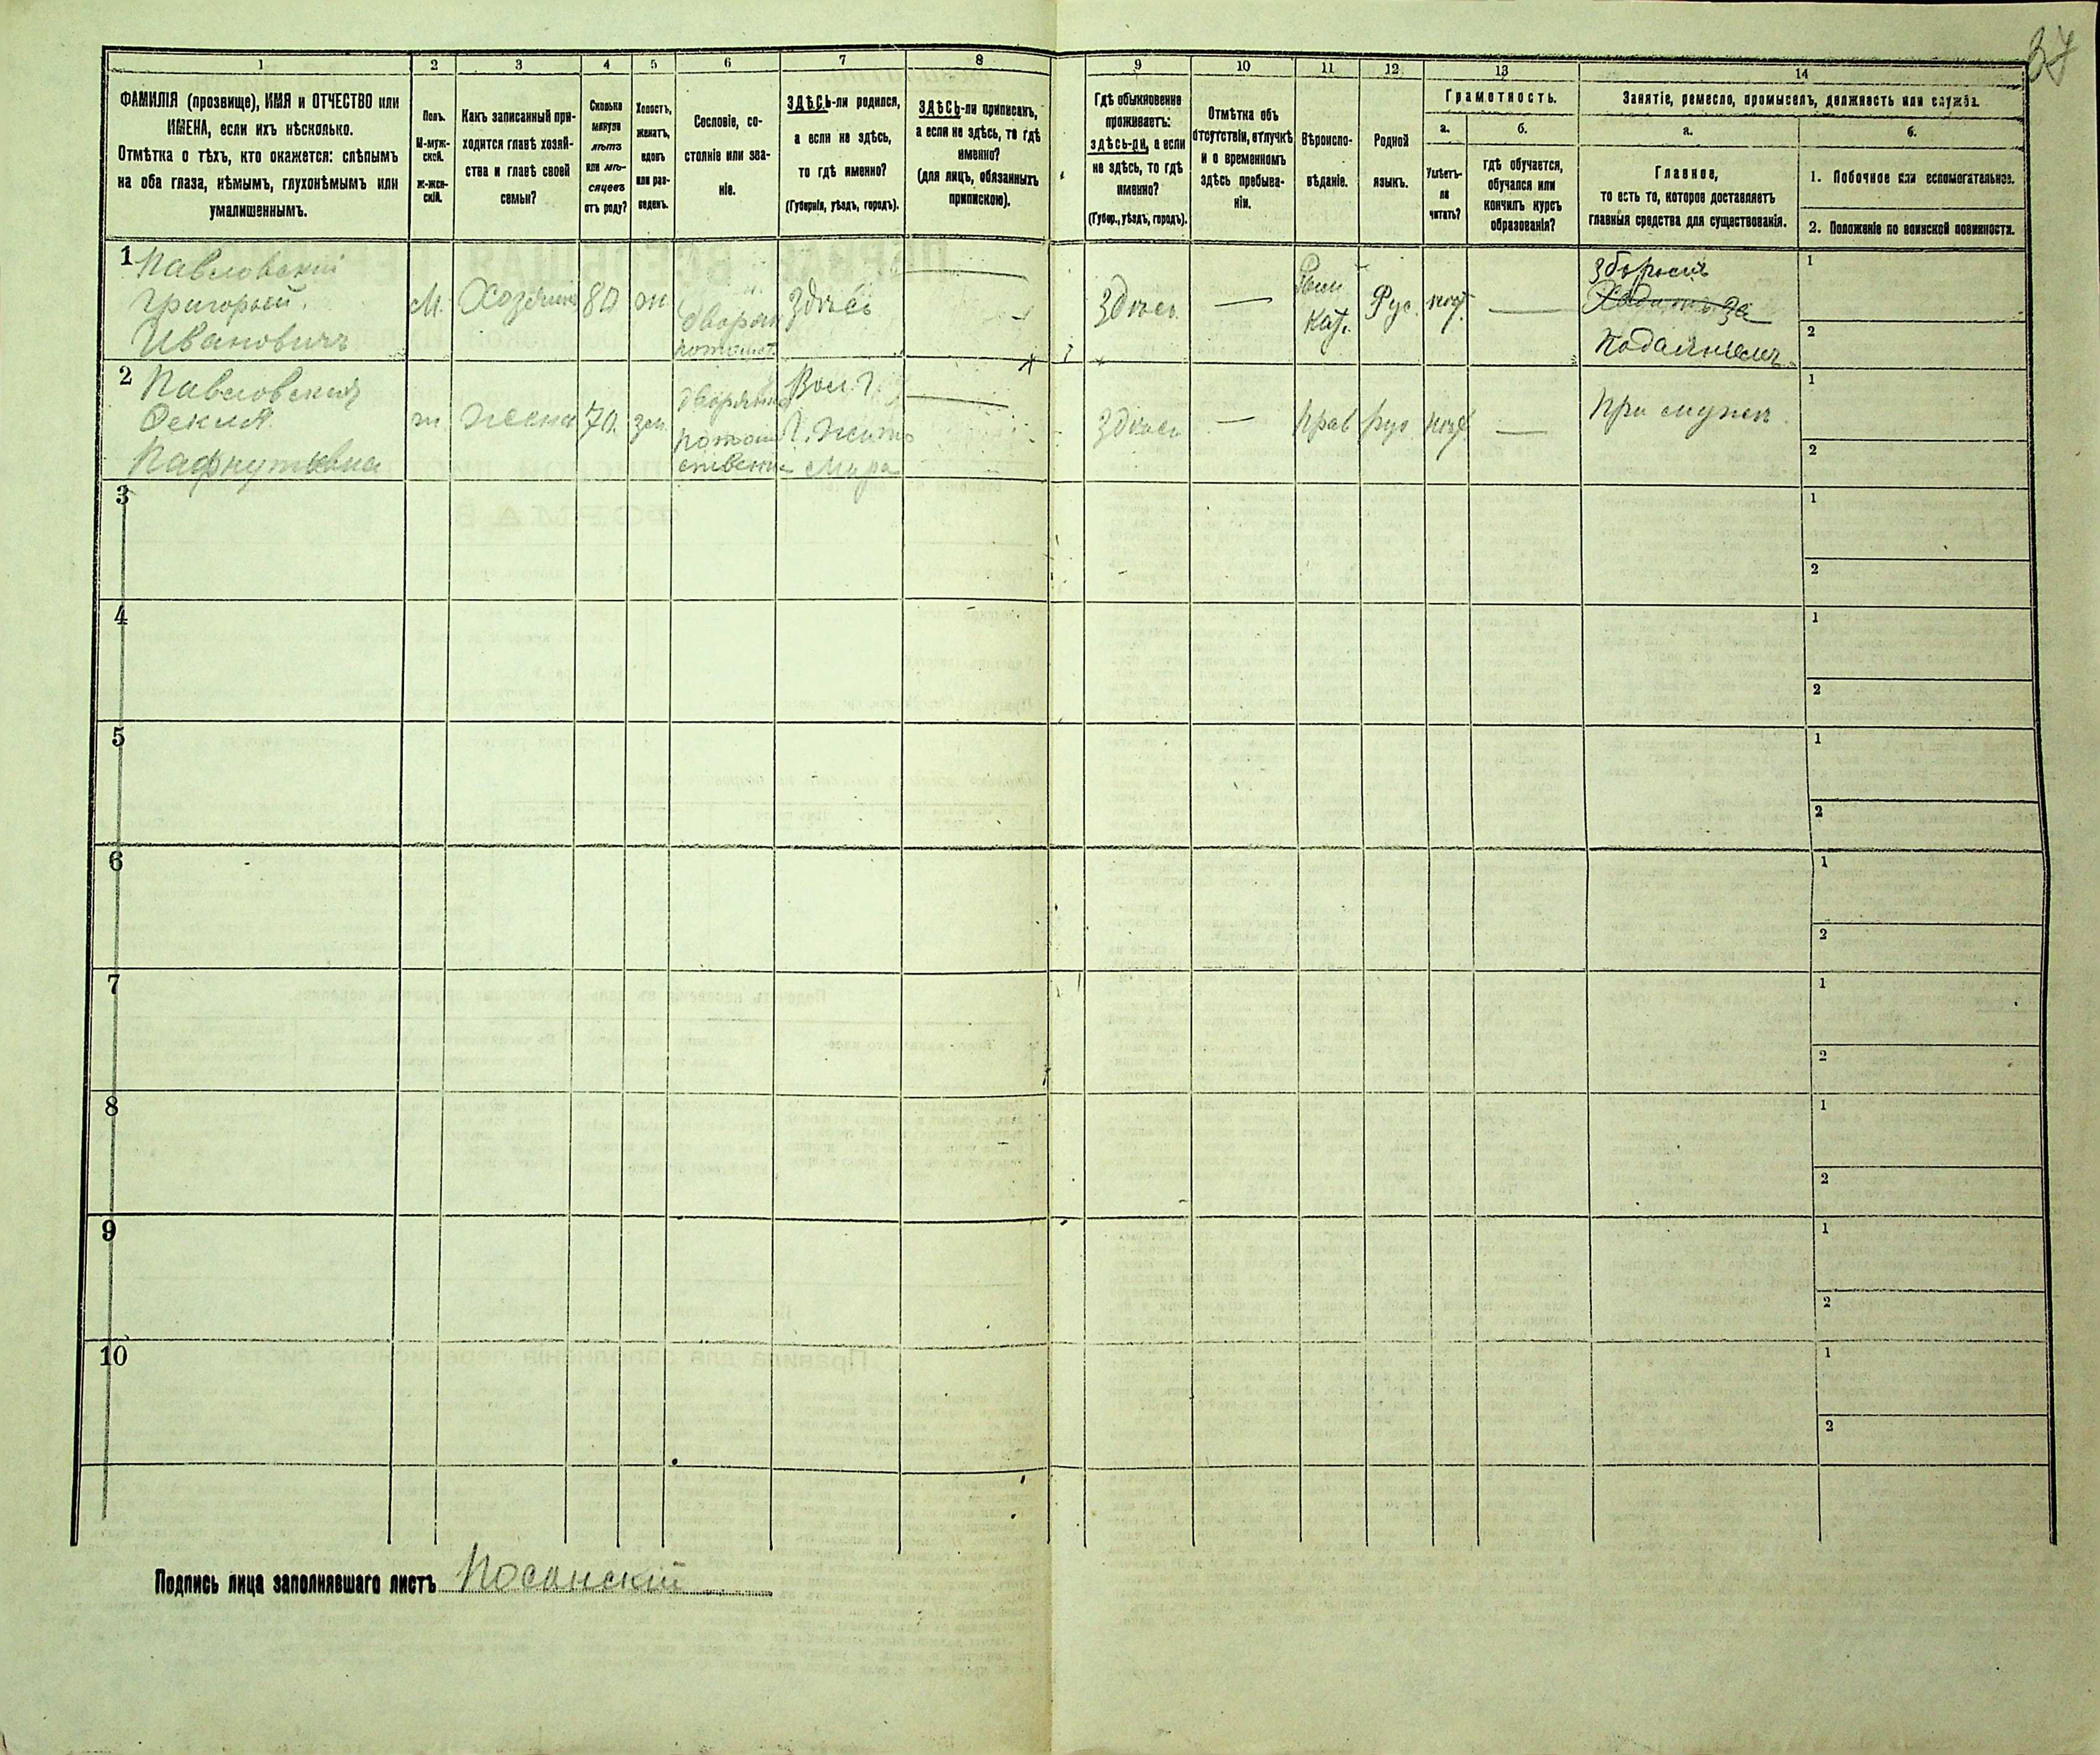 37
1
2
3
4
5
6
7
8
9
10
11
12
13
14
ФАМИЛІЯ (прозвище), ИМЯ и ОТЧЕСТВО или
ИМЕНА, если ихъ нѣсколько.
Отмѣтка о тѣхъ, кто окажется: слѣпымъ
на оба глаза, нѣмымъ, глухонѣмымъ или
умалишеннымъ.
Полъ.
М-муж-
ской.
ж-жен-
скій.
Какъ записанный при-
ходится главѣ хозяй-
ства и главѣ своей
семьи?
Сколько
минуло
лѣтъ
или мѣ-
сяцевъ
отъ роду?
Холостъ,
женатъ,
вдовъ
или раз-
веденъ.
Сословіе, со-
стояніе или зва-
ніе.
ЗДѢСЬ-ли родился,
а если не здѣсь,
то гдѣ именно?
(Губернія, уѣздъ, городъ).
ЗДѢСЬ-ли приписанъ,
а если не здѣсь, то гдѣ
именно?
(для лицъ, обязанныхъ
припискою).
Гдѣ обыкновенно
проживаетъ:
здѣсь-ли, а если
не здѣсь, то гдѣ
именно?
(Губер., уѣздъ, городъ).
Отмѣтка объ
отсутствіи, отлучкѣ
и о временномъ
здѣсь пребыва-
ніи.
Вѣроиспо-
вѣданіе.
Родной
языкъ.
Грамотность.
а.
б.
Умѣетъ-
ли
читать?
гдѣ обучается,
обучался или
кончилъ курсъ
образованія?
Занятіе, ремесло, промыселъ, должность или служба.
а.
б.
Главное,
то есть то, которое доставляетъ
главныя средства для существованія.
1. Побочное или вспомогательное.
2. Положеніе по воинской повинности.
1
Павловскій
Григорій
Ивановичъ
М.
Хозяинъ
80
ж
дворян
потомст.
Здѣсь
Здѣсь
—
Рим
Кат.
Рус.
нѣт.
—
За
Подаяніемъ
1
2
2
Павловская
Фекла
Пафнутьевна
ж.
жена
70
зам.
дворянка
потом
ственная
Вол. г.
г. Жито
мира
Здѣсь
—
Прав
рус
нѣт
—
При мужѣ
1
2
3
1
2
4
1
2
5
1
2
6
1
2
7
1
2
8
1
2
9
1
2
10
1
2
Подпись лица заполнявшаго листъ